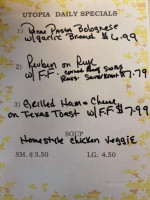 UTOPIA DAILY SPECIALS
1) Pasta Bolognese
w/garlic Bread $6.99
2) Reuben on Rye
w/ F.F. Corned Beef Swiss
Russ Sauerkraut $7.79
3) Grilled Ham & Cheese
on Texas Toast w/ F.F $7.99
SOUP
Homestyle Chicken Veggie
SM. $3.50 LG. 4.50